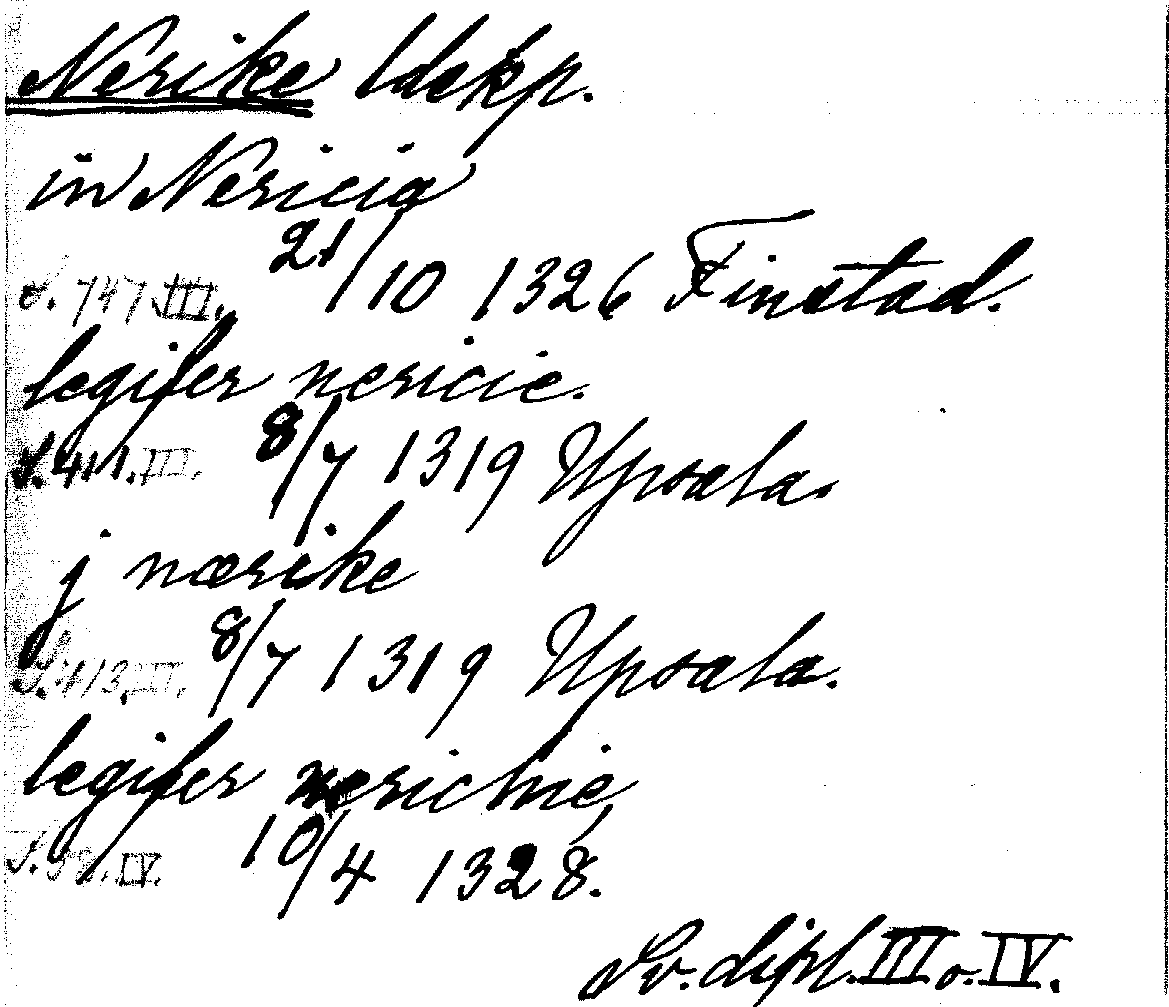 Nerike ldskp.
in Nericia
S. 747 III. 21/10 1326 Finstad.
legifer nericie.
S. 411. III. 8/7 1319 Upsala.
j nærike
S. 413. III. 8/7 1319 Upsala.
legifer nerichie,
S. 38. IV. 10/4 1328.
Sv. dipl. III o. IV.